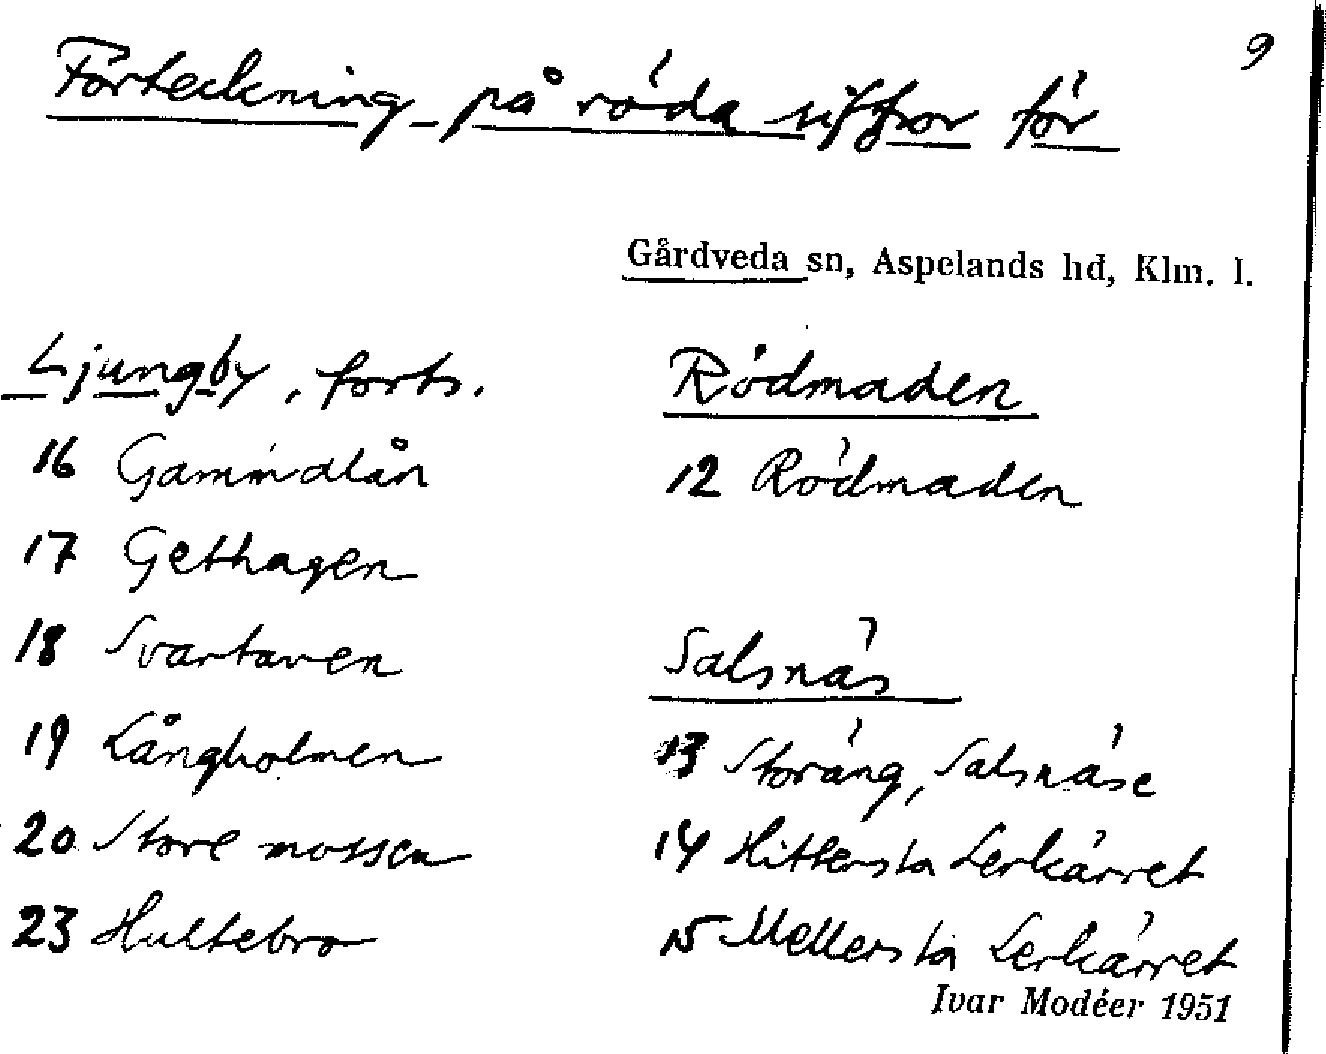 9
Förteckning på röda siffror för
Gårdveda sn, Aspelands hd, Klm. l.
Ljungby, forts.
16 Gammalån
17 Gethagen
18 Svartaven
19 Långholmen
20 Store mossen
23 Hultebro
Rödmaden
12 Rödmaden
Salsnäs
13 Storäng, Salsnäse
14 Hittersta Lerkärret
15 Mellersta Lerkärret
Ivar Modéer 1951